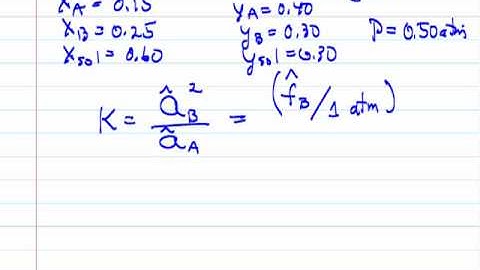 x_A = 0.15 y_A = 0.40
x_B = 0.25 y_B = 0.30 P = 0.50 atm
x_sol = 0.60 y_sol = 0.30
K = â_B² / â_A = (f̂_B / 1 atm)